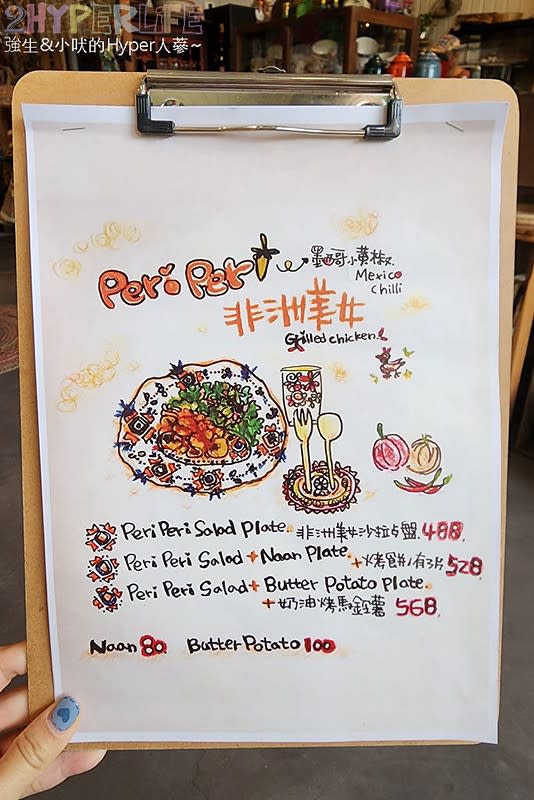 2HYPERLIFE
強生&小吠的Hyper人蔘~
Peri Peri
墨西哥小黃椒
Mexico
Chilli
非洲美女
Grilled chicken
Peri Peri Salad Plate. 非洲美女沙拉盤 488.
Peri Peri Salad + Naan Plate. +烤餅/有3片 528.
Peri Peri Salad + Butter Potato Plate.
+奶油烤馬鈴薯 568.
Naan 80. Butter Potato 100